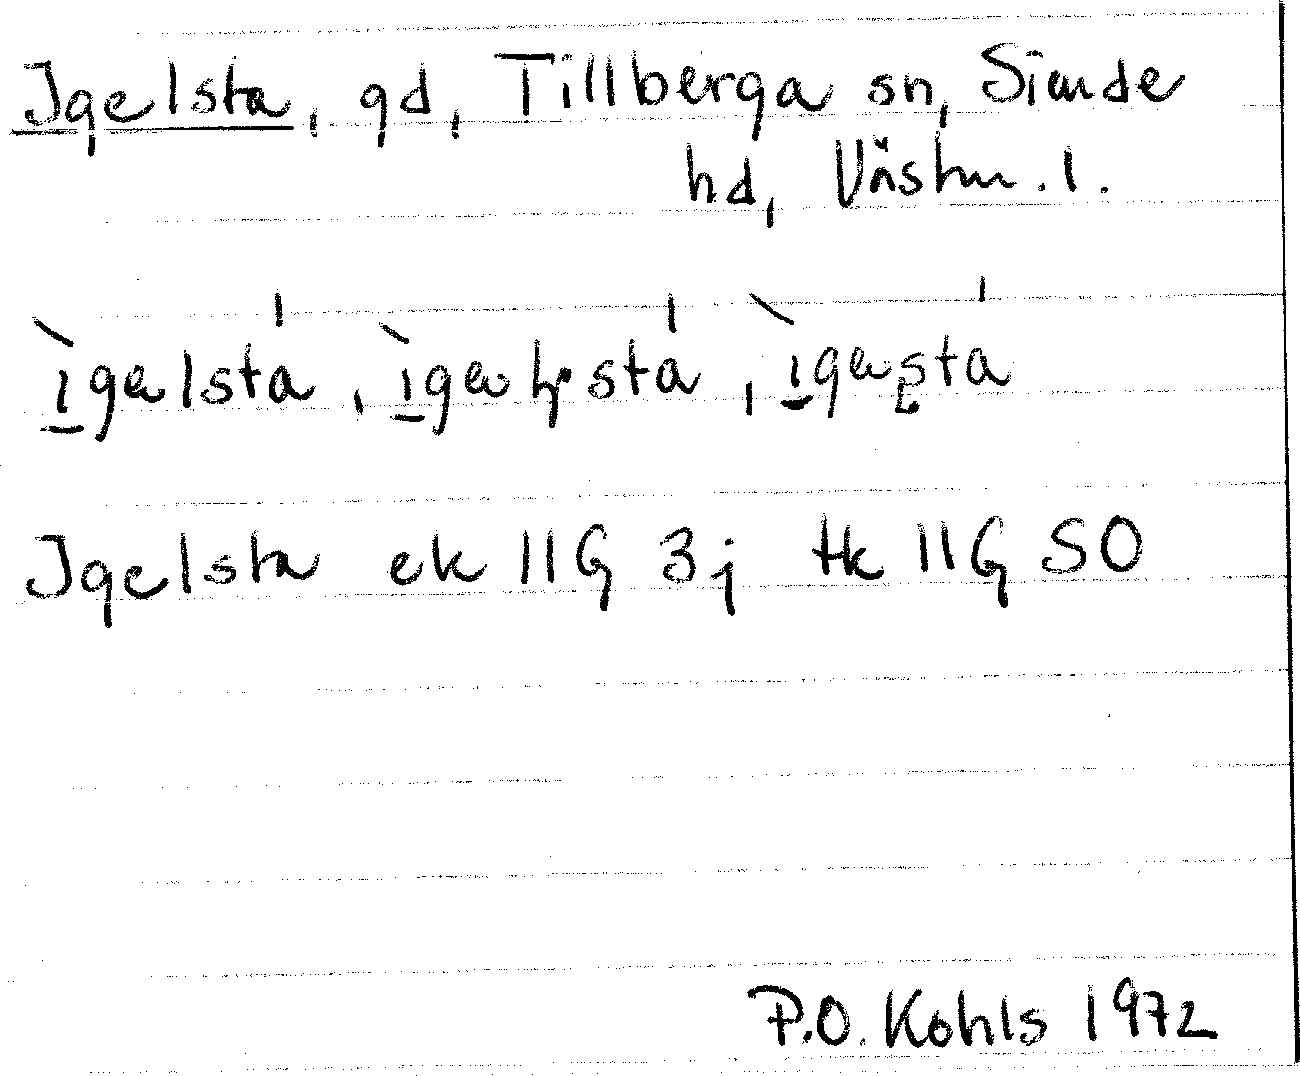 Igelsta, gd, Tillberga sn, Siende
hd, Västm. l.
ìgəlsta, ìgəḷsta, ìgəʂta
Igelsta ek 11G 3j tk 11G SO
P.O. Kohls 1972